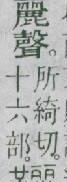 麗聲。
所綺切。
十六部。